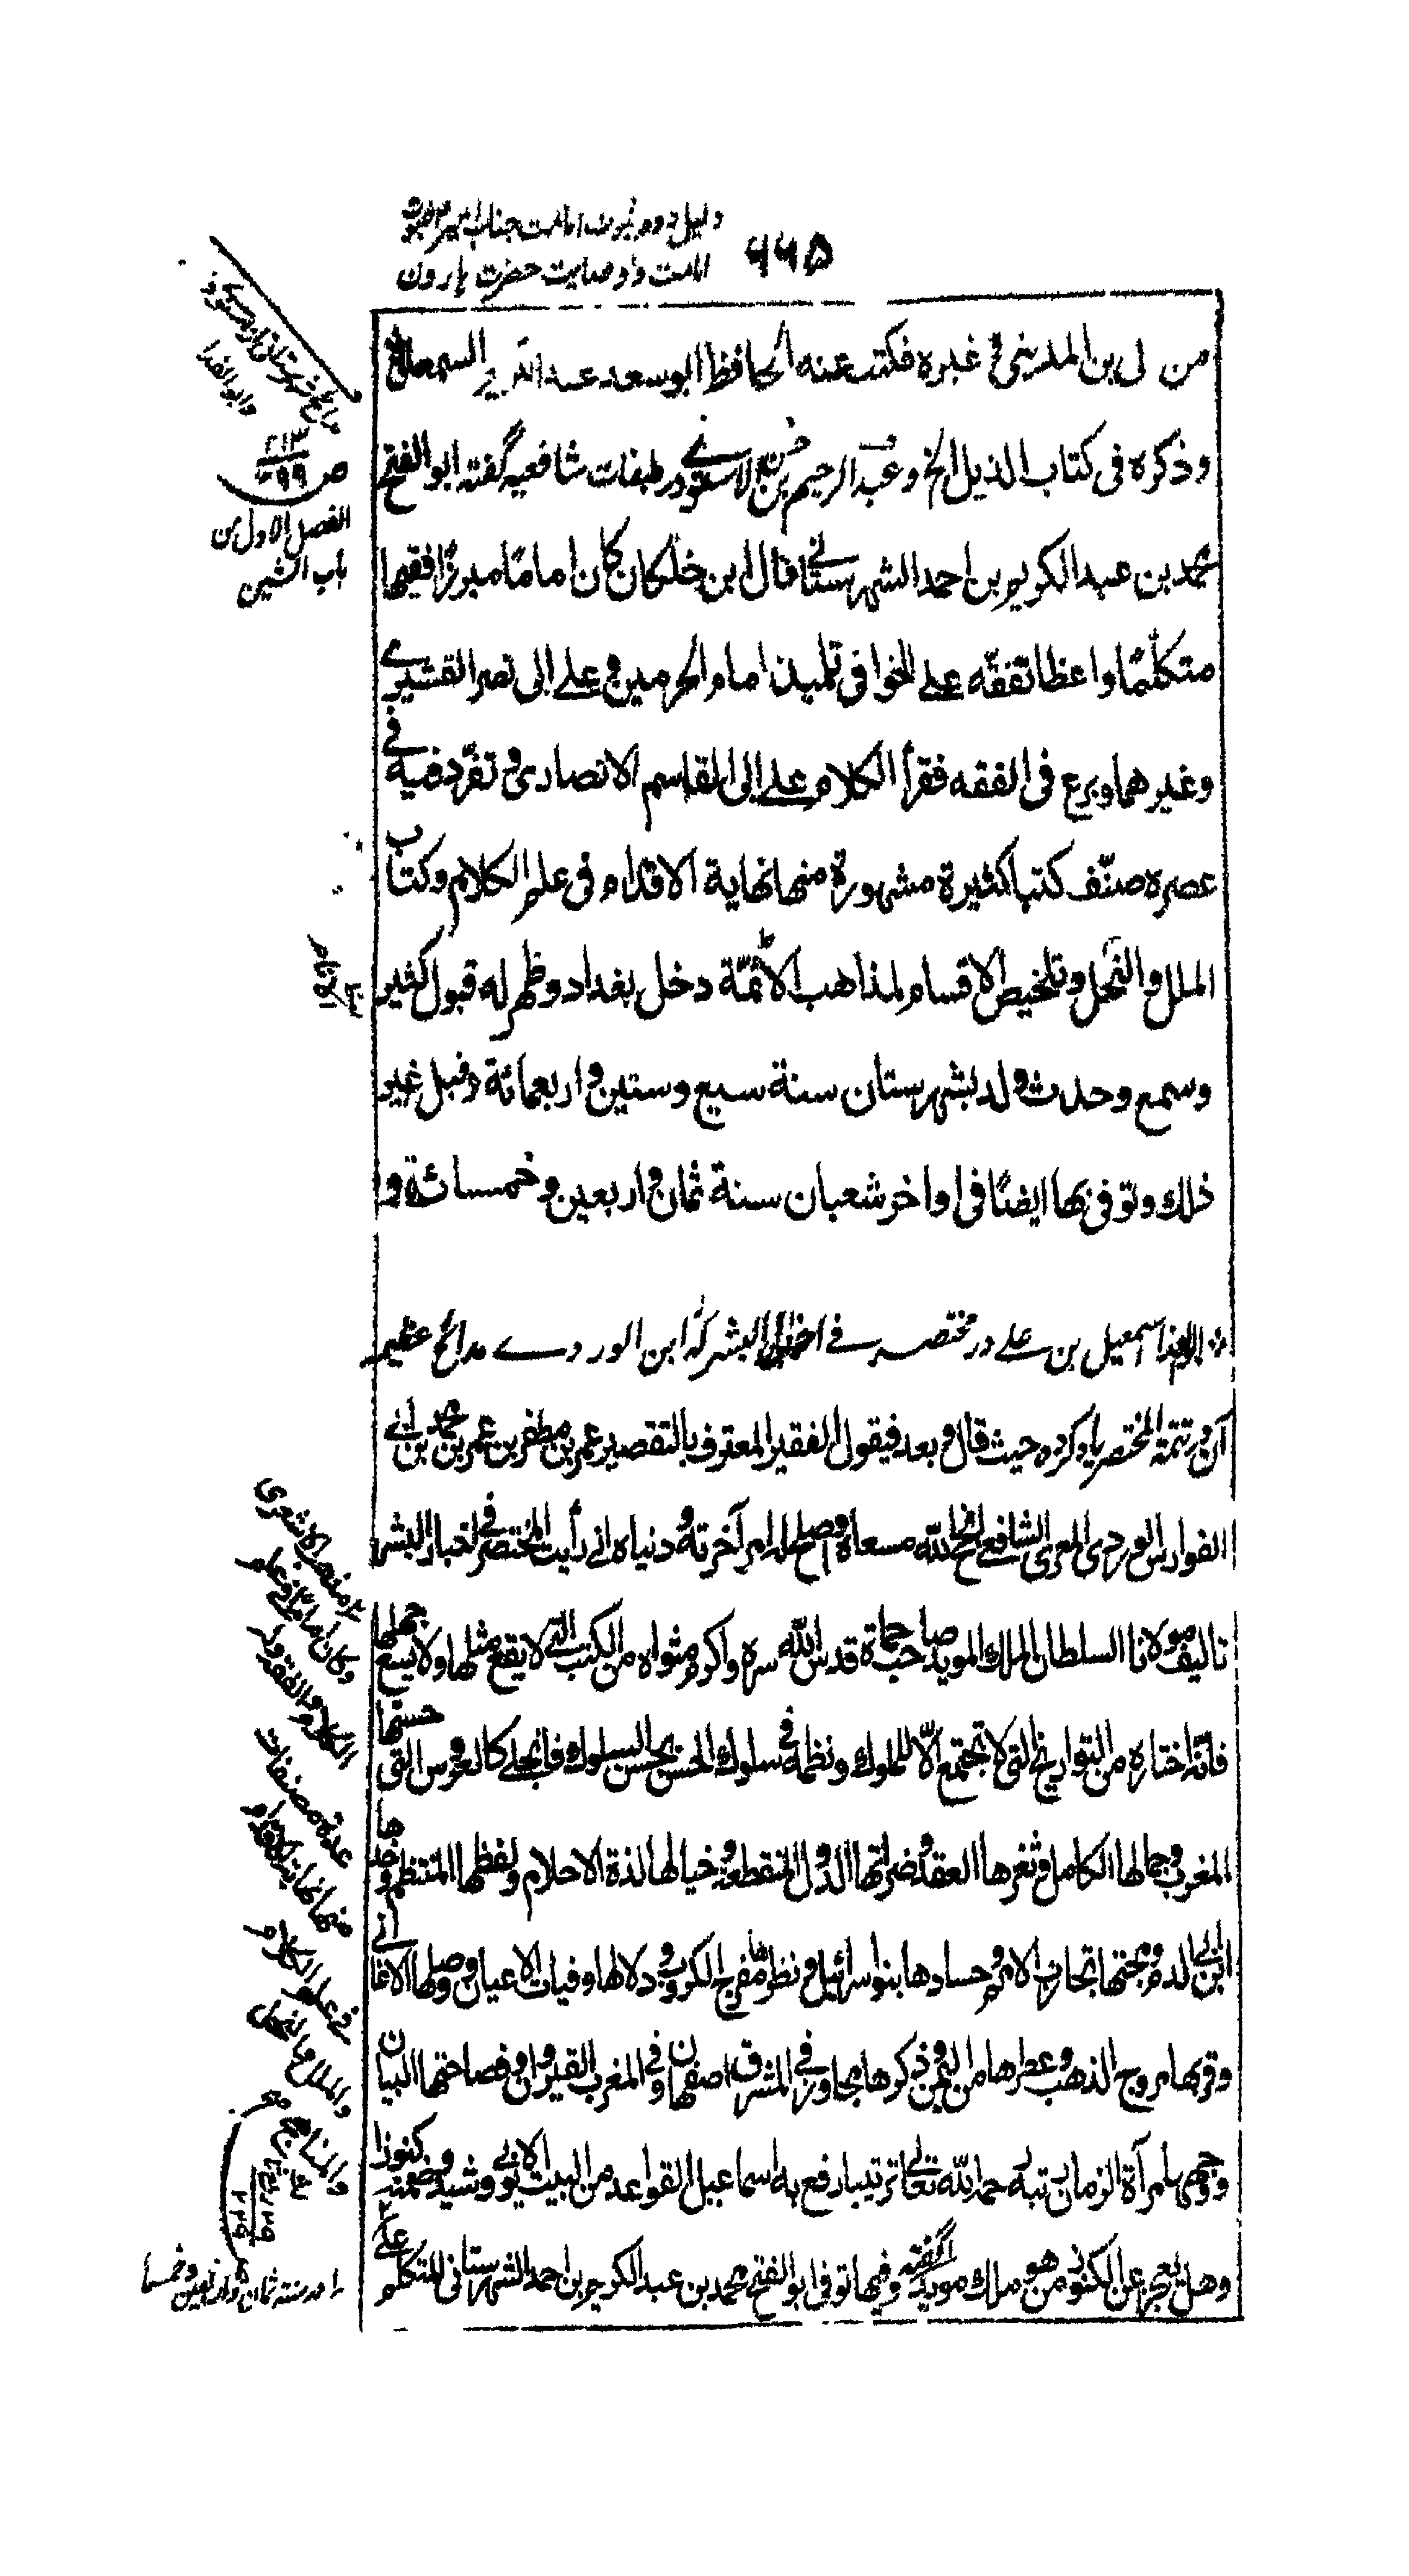 دلیل دوم ثبوت امامت جناب امیر بثبوت
امامت و وصایت حضرت ہارون
۶۶۵
من لی بن المدینی و غیره فکتب عنه الحافظ ابو سعد عبد الکریم السمعانی
وذکره فی کتاب الذیل الخ و عبد الرحیم بن حسن الاسنوی در طبقات شافعیه گفته ابو الفتح
محمد بن عبد الکریم بن احمد الشهرستانی قال ابن خلکان کان اماما مبرزا فقیها
متکلّما واعظا تفقّه علی الخوافی تلمیذ امام الحرمین و علی ابی نصر القشیری
وغیرهما وبرع فی الفقه فقرأ الکلام علی ابی القاسم الانصاری و تفرّد فیه فی
عصره صنّف کتبا کثیرة مشهورة منها نهایة الاقدام فی علم الکلام وکتاب
الملل والنحل وتلخیص الاقسام لمذاهب الائمّة دخل بغداد وظهر له قبول کثیر
وسمع وحدث ولد بشهرستان سنة سبع وستین و اربعمائة وقبل غیر
ذلك وتوفی بها ایضا فی اواخر شعبان سنة ثمان و اربعین وخمسمائة و
ابو الفدا اسمعیل بن علی در مختصر فی اخبار البشر که ابن الوردی مدائح عظیمه
آن در تتمة المختصر یاد کرده حیث قال و بعد فیقول الفقیر المعترف بالتقصیر عمر بن مظفر بن عمر بن محمد بن ابی
الفوارس الوردی المعری الشافعی انجح الله مسعاه واصلح له امر آخرته و دنیاه انی رأیت المختصر فی اخبار البشر
تالیف مولانا السلطان الملك المؤید صاحب حماة قدس الله سره واکرم مثواه من الکتب التی لا یقع مثلها ولا یسع جهلها
فانّه اختاره من التواریخ التی لا تجتمع الّا للملوك ونظمه فی سلوك الحسن بحسن السلوك فانجلی کالعروس التی حسنها
المغرب وجمالها الکامل وثغرها العقد وضراتها الدول المنقطعة وخیالها لذة الاحلام ولفظها المنتظم وخدها
ابن ابی الدم وبهجتها تجارب الامم وحسادها بنو اسرائیل ونظرها مفرج الکروب ودلالها وفیات الاعیان ووصلها الاغانی
وقربها مروج الذهب وعطرها من الیمن وذکرها مجاوز فی المشرق اصفهان وفی المغرب القیروان وفصاحتها البیان
و وجهی بها مرآة الزمان رتبه رحمه الله تعالی ترتیبا رفع به اسماعیل القواعد من البیت الایوبی وشید وضمنه کنوزا
وهل یعجز عن الکنوز من هو ملك مؤید گفته وفیها توفی ابو الفتح محمد بن عبد الکریم بن احمد الشهرستانی المتکلم علی
مدائح شهرستانی از
وابو الفدا
ص ۲۱۳
الفصل الاول من
باب الشین
مذهب الاشعری
وکان اماما فی علم
الکلام والفقه وله
عدة مصنفات
منها نهایة الاقدام
فی علم الکلام
والملل والنحل
والمناهج
ا مر سنة ثمان واربعین وخمسما